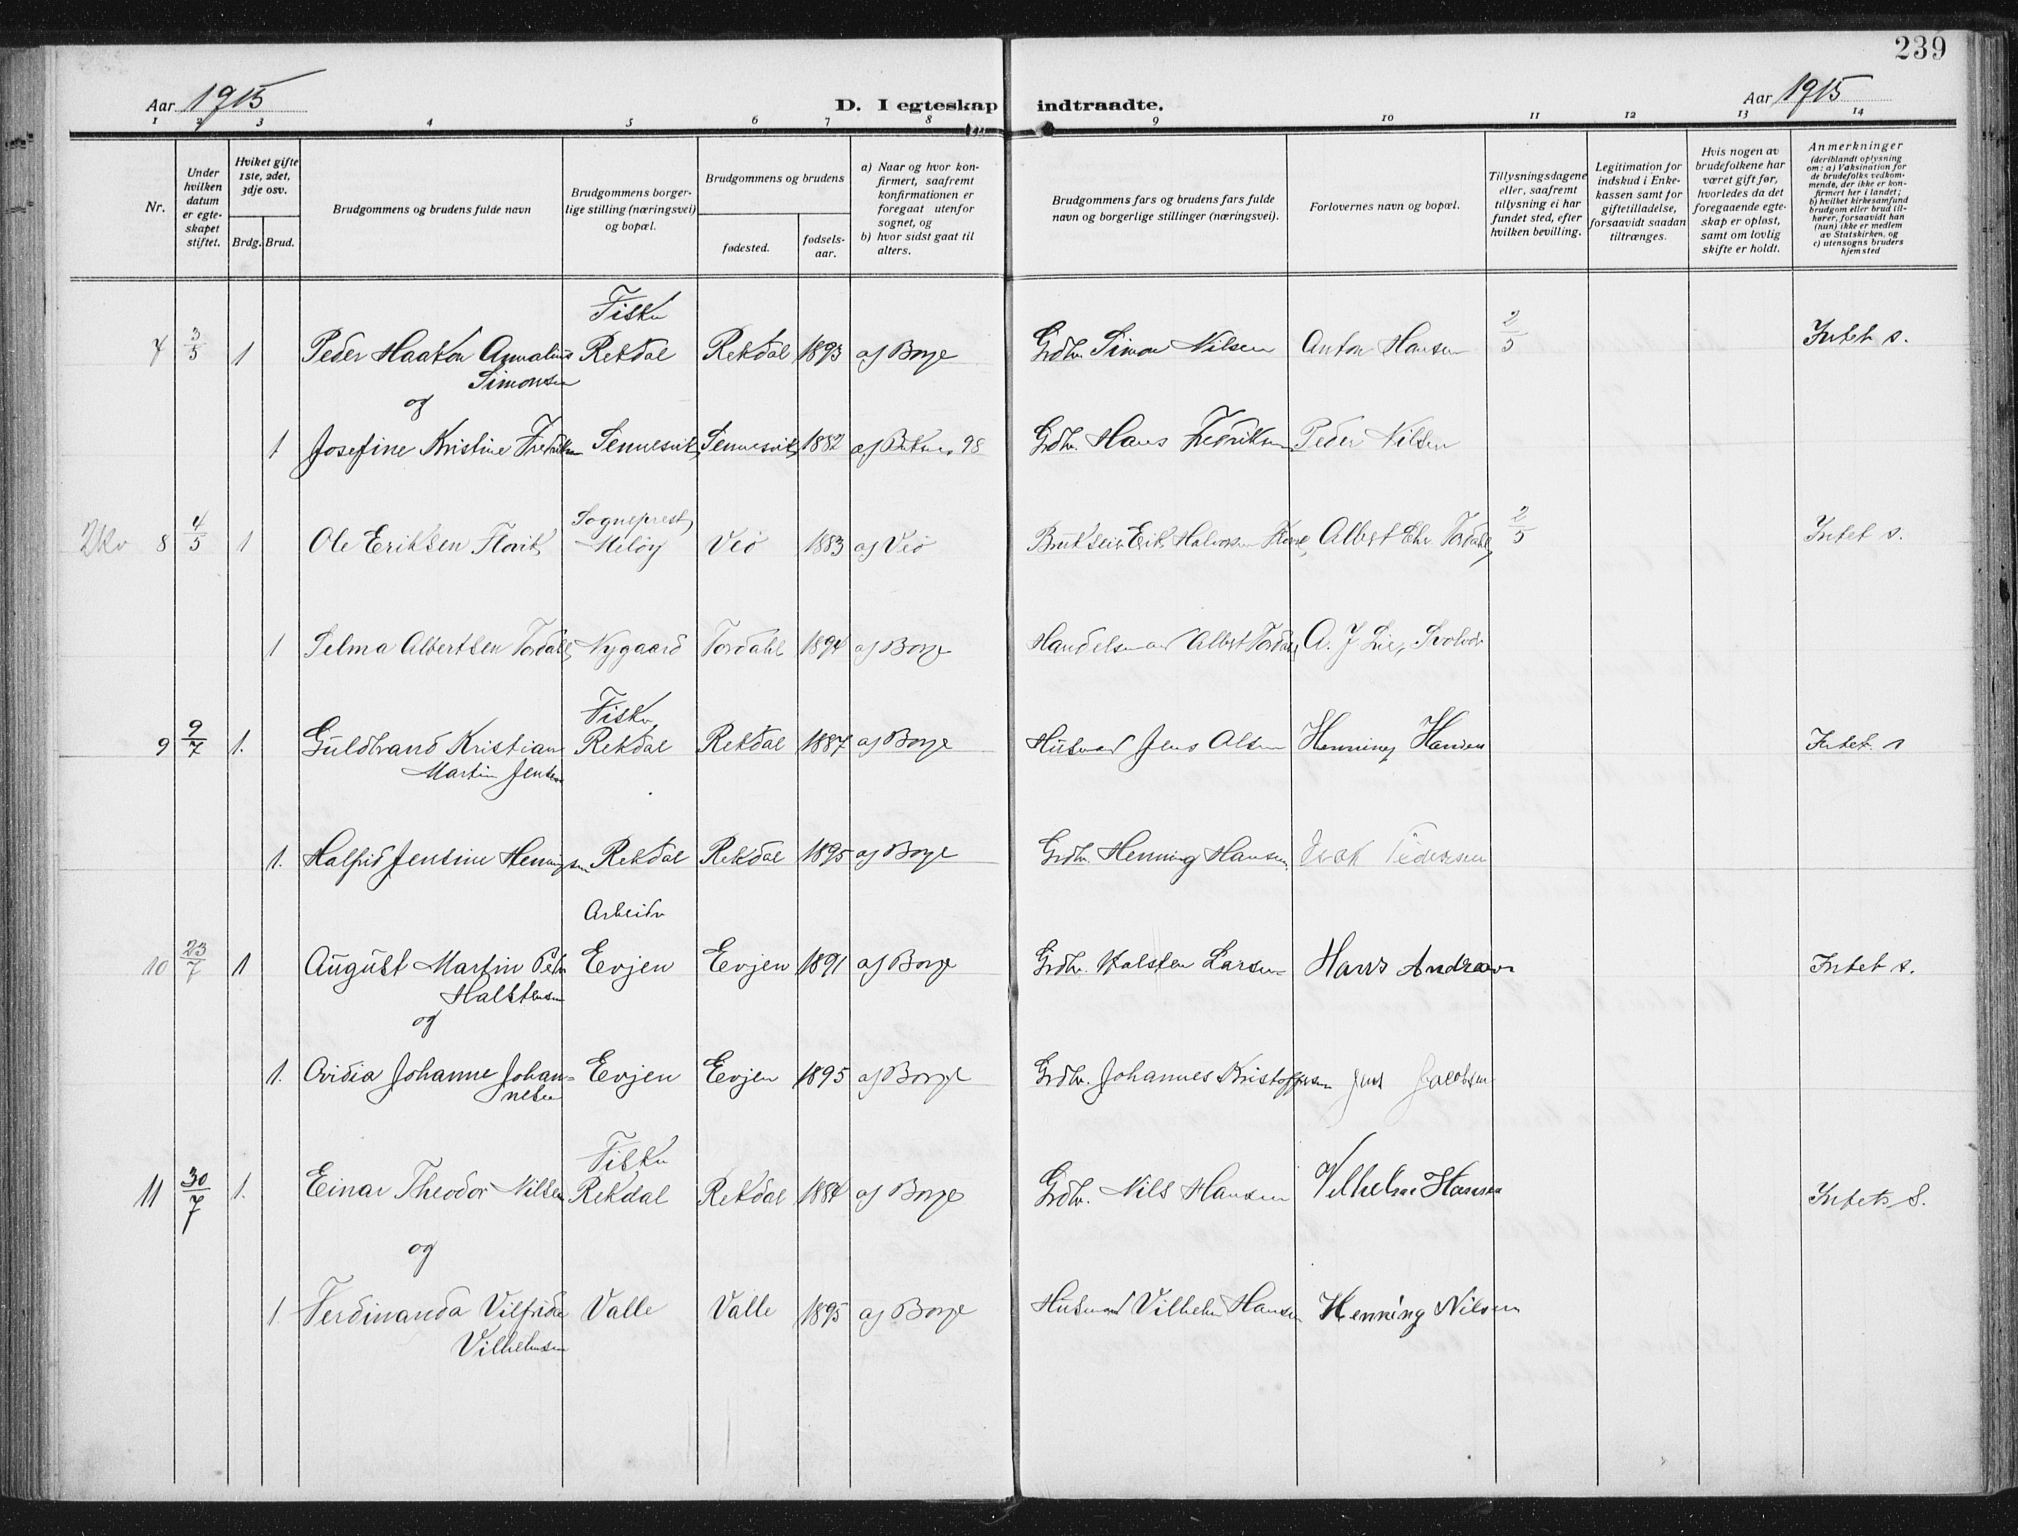 239
Aar 1915
D. I egteskap indtraadte.
Aar 1915
1 2 3 4 5 6 7 8 9 10 11 12 13 14
Nr.
Under hvilken datum er egteskapet stiftet.
Hviket gifte 1ste, 2det, 3dje osv.
Brdg. Brud.
Brudgommens og brudens fulde navn
Brudgommens borgerlige stilling (næringsvei) og bopæl.
Brudgommens og brudens
fødested.
fødselsaar.
a) Naar og hvor konfirmert, saafremt konfirmationen er foregaat utenfor sognet, og
b) hvor sidst gaat til alters.
Brudgommens fars og brudens fars fulde navn og borgerlige stillinger (næringsvei).
Forlovernes navn og bopæl.
Tillysningsdagene eller, saafremt tillysning ei har fundet sted, efter hvilken bevilling.
Legitimation for indskud i Enkekassen samt for giftetilladelse, forsaavidt saadan tiltrænges.
Hvis nogen av brudefolkene har været gift før, hvorledes da det foregaaende egteskap er opløst, samt om lovlig skifte er holdt.
Anmerkninger (deriblandt oplysning om: a) Vaksination for de brudefolks vedkommende, der ikke er konfirmert her i landet; b) hvilket kirkesamfund brudgom eller brud tilhører, forsaavidt han (hun) ikke er medlem av Statskirken, og c) utensogns bruders hjemsted
Fisker
7 3/5 1 Peder Haakon Amalius Rekdal Rekdal 1893 af Borge Grdbr. Simon Nilsen Anton Hansen 2/5 Intet s.
Simonsen
og
1 Josefine Kristine Fredriksen Sennesvik Sennesvik 1882 af Buksnes 98 Grdbr. Hans Fredriksen Peder Nilsen
Sogneprest
8 4/5 1 Ole Eriksen Flovik Meløy Veø 1883 af Veø Erik Halvorsen Albert Chr Tordahl 2/5 Intet s.
1 Selma Albertsen Tordahl Nygaard Tordahl 1894 af Borge Handelsmand Albert Tordahl A. J. Lie, Svolvær
Fisker
9 9/7 1. Guldbrand Kristian Rekdal Rekdal 1887 af Borge Husmand Jens Olsen Henning Hansen Intet s
Martin Jensen
1. Halfrid Jensine Henningsen Rekdal Rekdal 1895 af Borge Grdbr. Henning Hansen Isak Pedersen
Arbeider
10 23/7 1 August Martin Peder Eevjen Eevjen 1891 af Borge Grdbr. Halsten Larsen Hans Andreassen Intet s.
Halstensen
og
1. Ovidia Johanne Johan= Eevjen Eevjen 1895 af Borge Grdbr. Johannes Kristoffersen Jens Jacobsen
nesen
Fisker
11 30/7 1. Einar Theodor Nilsen Rekdal Rekdal 1884 af Borge Grdbr. Nils Hansen Vilhelm Hansen Intet S.
og
1. Ferdinanda Vilfride Valle Valle 1895 af Borge Husmand Vilhelm Hansen Henning Nilsen
Vilhelmsen